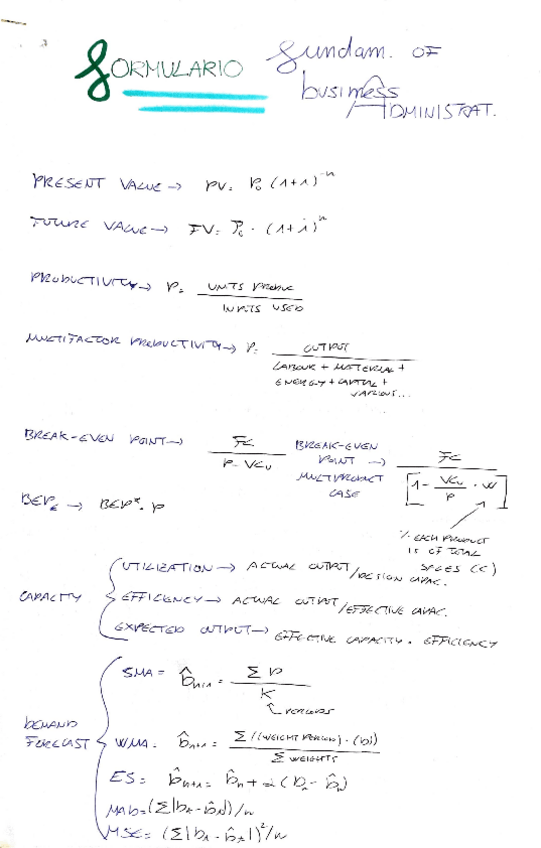 FORMULARIO fundam. OF
business
ADMINISTRAT.
PRESENT VALUE → PV = P₀ (1+i)⁻ⁿ
FUTURE VALUE → FV = P₀ · (1+i)ⁿ
PRODUCTIVITY → P = UNITS PRODUC / INPUTS USED
MULTIFACTOR PRODUCTIVITY → P = OUTPUT / LABOUR + MATERIAL +
ENERGY + CAPITAL +
VARIOUS...
BREAK-EVEN POINT → FC / P - VCu
BREAK-EVEN
POINT →
MULTIPRODUCT
CASE
FC / [1 - VCu / P · W]
% EACH PRODUCT
IS OF TOTAL
SALES (€)
BEP€ → BEP* · P
CAPACITY
UTILIZATION → ACTUAL OUTPUT / DESIGN CAPAC.
EFFICIENCY → ACTUAL OUTPUT / EFFECTIVE CAPAC.
EXPECTED OUTPUT → EFFECTIVE CAPACITY · EFFICIENCY
DEMAND
FORECAST
SMA = D̂ₙ₊₁ = Σ D / K
PERIODS
WMA = D̂ₙ₊₁ = Σ ((WEIGHT PERIOD) · (Di) / Σ WEIGHTS
ES = D̂ₙ₊₁ = D̂ₙ + α (Dₙ - D̂ₙ)
MAD = (Σ |Dₜ - D̂ₜ|) / n
MSE = (Σ |Dₜ - D̂ₜ|)² / n